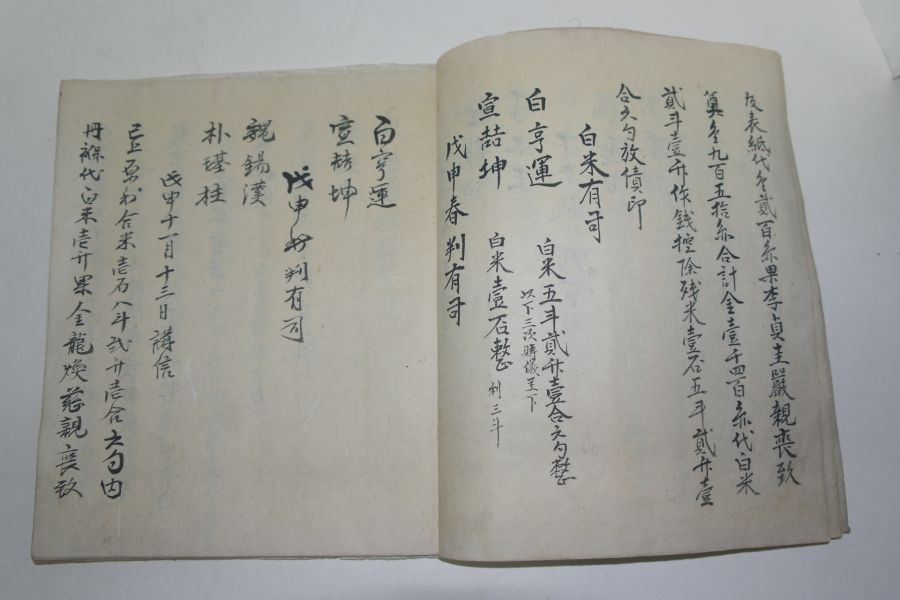 及表紙代金貳百兩果李貞圭嚴親喪致
奠金九百五拾兩合計金壹千四百兩代白米
貳斗壹升作錢控除殘米壹石五斗貳升壹
合六勺放債印
白米有司
白亨運 白米五斗貳升壹合六勺整
以下三次賻儀呈下
宣喆坤 白米壹石整 利三斗
戊申春判有司
白亨運
宣喆坤
戊申 判有司
魏錫漢
朴瑾柱
戊申十一月十三日講信
已上 合米壹石八斗貳升壹合六勺內
丹 代白米壹升果金龍煥慈親喪致